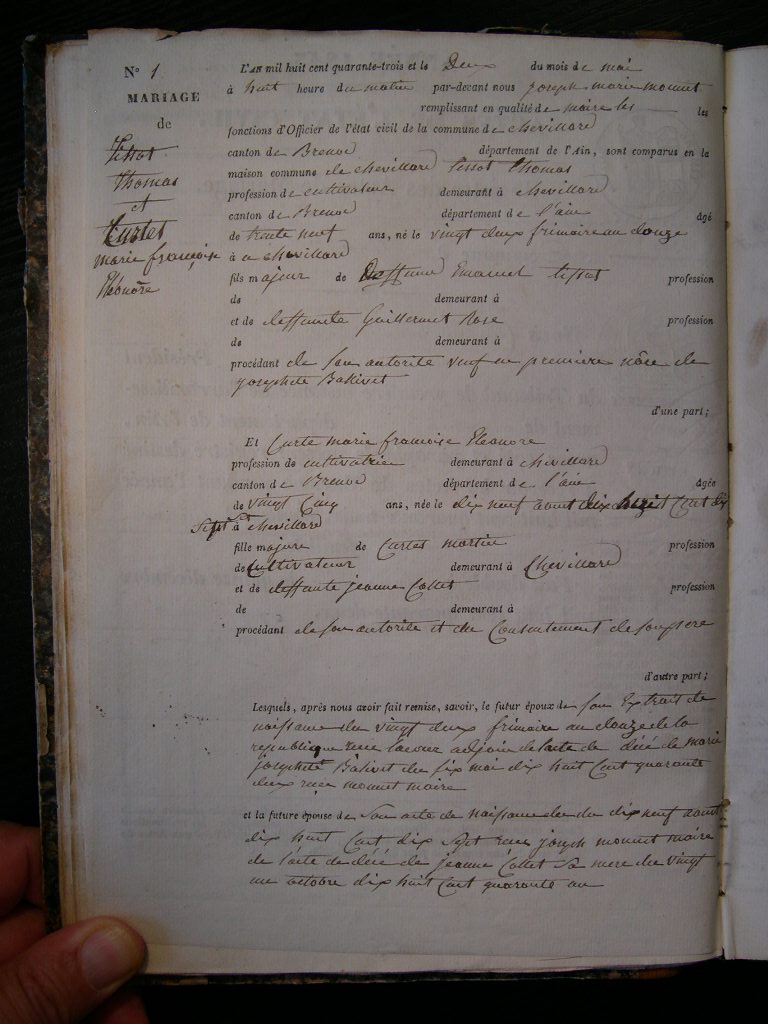 N° 1
MARIAGE
de
Tissot
Thomas
et
Curtet
marie françoise
Eléonore
L'AN mil huit cent quarante-trois et le Deux du mois de mai
à huit heure du matin par-devant nous joseph marie monnet
remplissant en qualité de maire les les
fonctions d'Officier de l'état civil de la commune de chevillard
canton de Brenod département de l'Ain, sont comparus en la
maison commune de chevillard Tissot Thomas
profession de cultivateur demeurant à chevillard
canton de Brenod département de l'ain âgé
de trente neuf ans, né le vingt deux frimaire an douze
à a chevillard
fils majeur de Deffunt Emanuel tissot profession
de demeurant à
et de deffunte Guillermet Rose profession
de demeurant à
procédant de son autorité veuf en première nôce de
josephte Ballivet
d'une part;
Et Curte marie françoise Eleonore
profession de cultivatrice demeurant à chevillard
canton de Brenod département de l'ain âgée
de vingt Cinq ans, née le dix neuf aout dix huit Cent dix
Sept à chevillard
fille majeure de Curtet martin profession
de Cultivateur demeurant à Chevillard
et de deffunte jeanne Collet profession
de demeurant à
procédant de son autorité et du Consentement de son pere
d'autre part;
Lesquels, après nous avoir fait remise, savoir, le futur époux de son Extrait de
naissance du vingt deux frimaire an douze de la
republique reçu adjoin de l'acte de décé de marie
josephte Balivet du six mai dix huit Cent quarante
deux reçu monnet maire
et la future épouse de son acte de naissance de du dix neuf aout
dix huit Cent dix Sept reçu joseph monnet maire
de l'acte de décé de jeanne Collet Sa mere du vingt
un octobre dix huit Cent quarante un